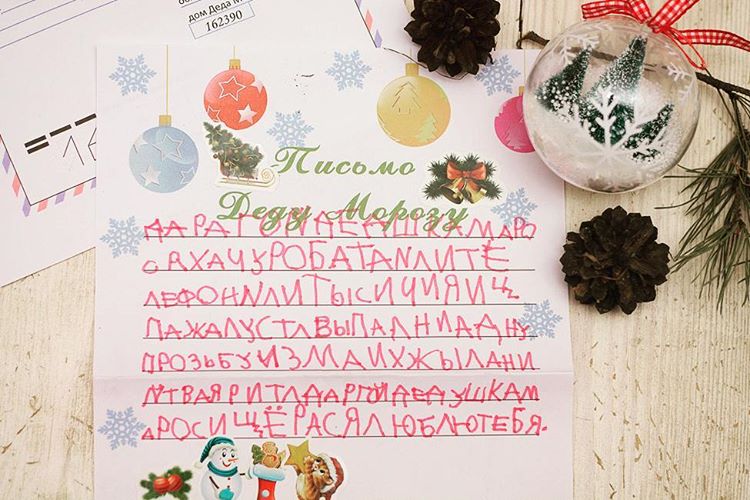 дом Деда М
162390
Письмо
Деду Морозу
ДАРАГОЙ ДЕДУШКА МАРО
С Я ХАЧУ РОБАТА ИЛИ ТЕ
ЛЕФОН ИЛИ ТЫСИЧИ ЯИЦ
ПАЖАЛУСТА ВЫПАЛНИ АДНУ
ПРОЗЬБУ ИЗ МАИХ ЖЫЛАНИ
Й ТВАЯ РИТА ДАРГОЙ ДЕДУШКА М
АРОС ИЩЁ РАС Я ЛЮБЛЮ ТЕБЯ.